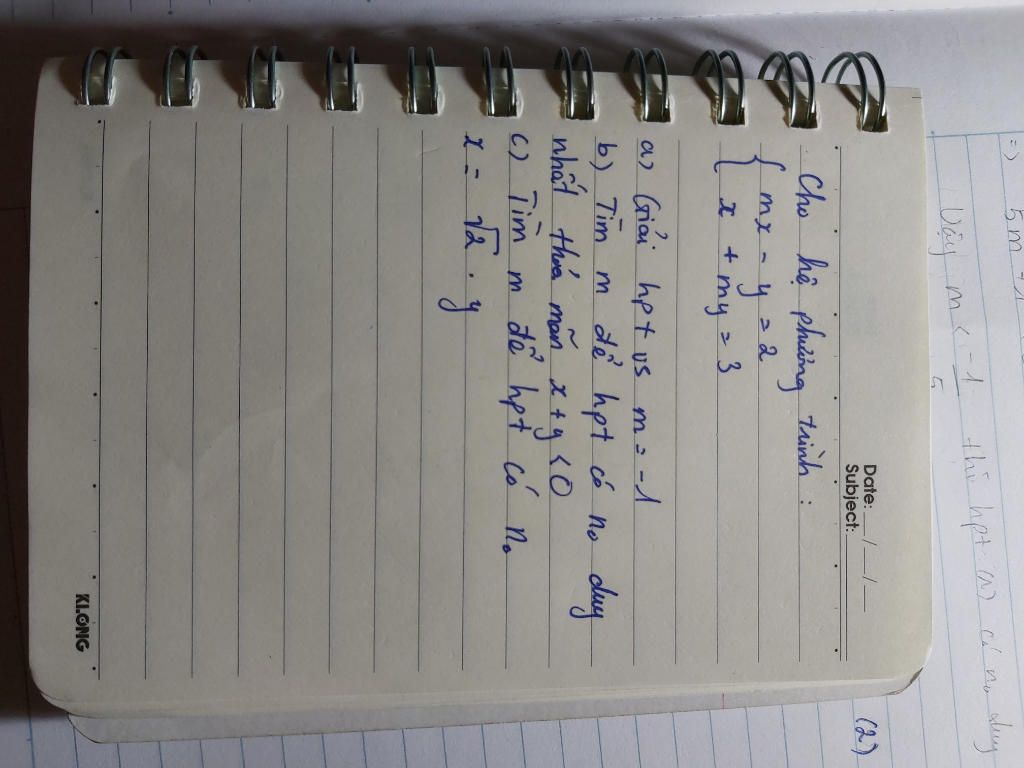 Date: __/__/__
Subject: ______
Cho hệ phương trình :
{ mx - y = 2
x + my = 3
a) Giải hpt vs m = -1
b) Tìm m để hpt có no duy
nhất thỏa mãn x + y < 0
c) Tìm m để hpt có no
x = √2 . y
KLONG
=) 5m +
Vậy m < -1/5 thì hpt (1) có no duy
(2)